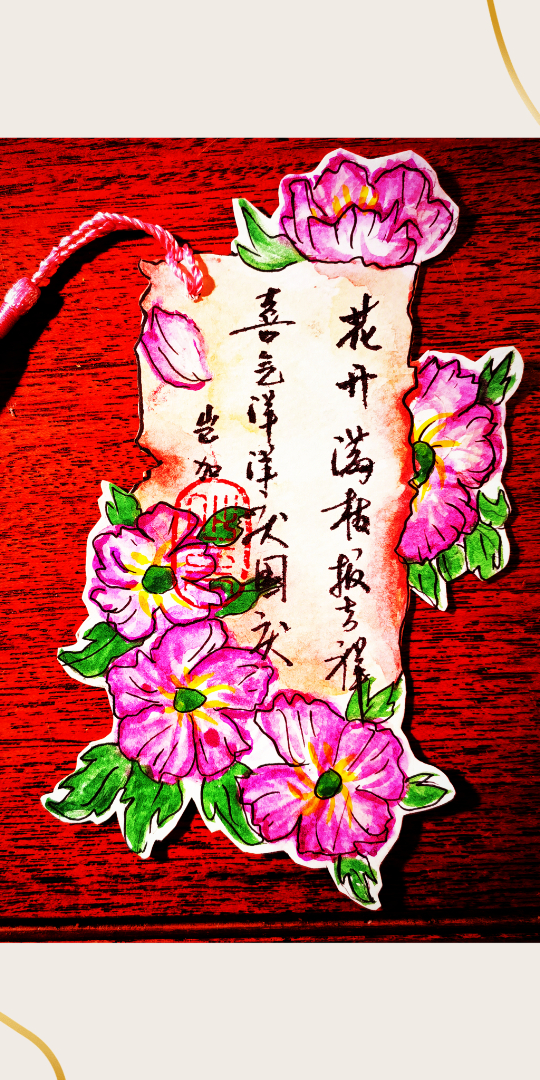 花开满枝报吉祥
喜气洋洋大国庆
岂加